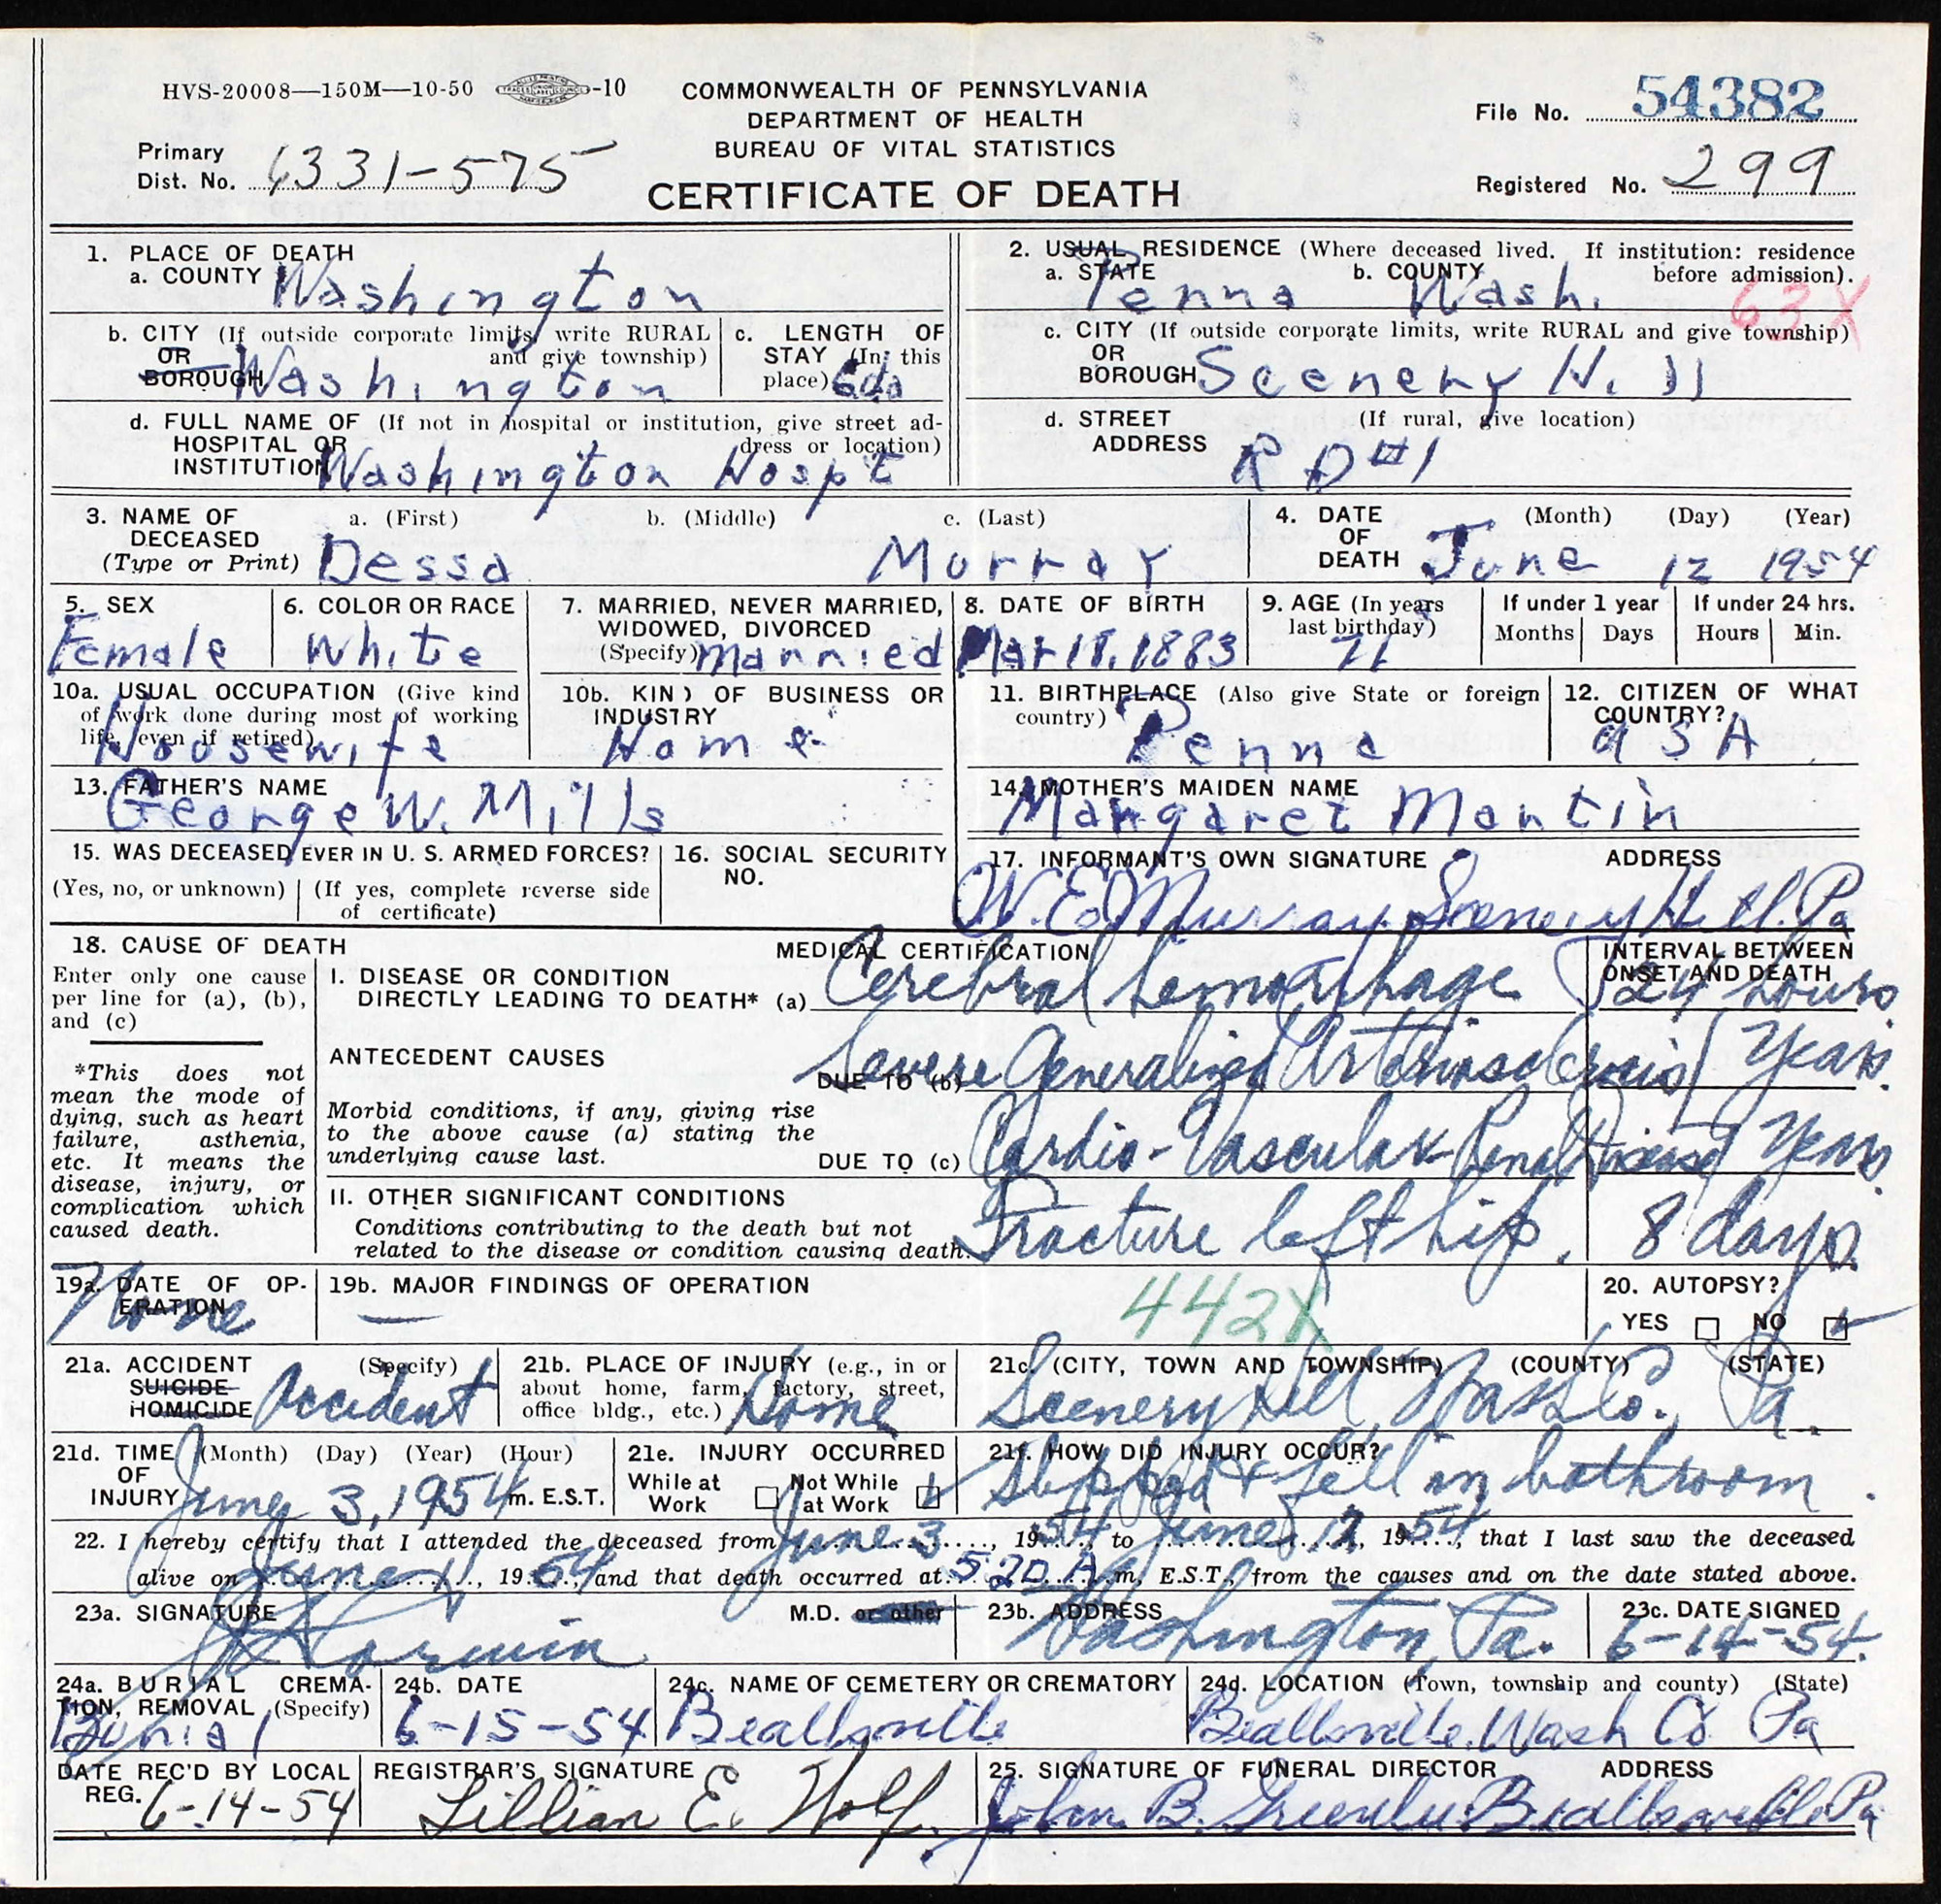 HVS-20008—150M—10-50 -10
COMMONWEALTH OF PENNSYLVANIA
DEPARTMENT OF HEALTH
BUREAU OF VITAL STATISTICS
CERTIFICATE OF DEATH
File No. 54382
Primary Dist. No. 6331-575
Registered No. 299
1. PLACE OF DEATH
a. COUNTY Washington
2. USUAL RESIDENCE (Where deceased lived. If institution: residence before admission).
a. STATE Penna b. COUNTY Wash. 63X
b. CITY (If outside corporate limits, write RURAL and give township)
OR BOROUGH Washington
c. LENGTH OF STAY (In this place) 6da
c. CITY (If outside corporate limits, write RURAL and give township)
OR BOROUGH Scenery Hill
d. FULL NAME OF (If not in hospital or institution, give street address or location)
HOSPITAL OR INSTITUTION Washington Hospt
d. STREET ADDRESS (If rural, give location)
R D #1
3. NAME OF DECEASED (Type or Print)
a. (First) b. (Middle) c. (Last)
Dessa Murray
4. DATE OF DEATH (Month) (Day) (Year)
June 12 1954
5. SEX
Female
6. COLOR OR RACE
White
7. MARRIED, NEVER MARRIED, WIDOWED, DIVORCED (Specify)
Married
8. DATE OF BIRTH
Mar 18, 1883
9. AGE (In years last birthday)
71
If under 1 year Months Days
If under 24 hrs. Hours Min.
10a. USUAL OCCUPATION (Give kind of work done during most of working life, even if retired)
Housewife
10b. KIND OF BUSINESS OR INDUSTRY
Home
11. BIRTHPLACE (Also give State or foreign country)
Penna
12. CITIZEN OF WHAT COUNTRY?
USA
13. FATHER'S NAME
George W. Mills
14. MOTHER'S MAIDEN NAME
Margaret Martin
15. WAS DECEASED EVER IN U. S. ARMED FORCES?
(Yes, no, or unknown) (If yes, complete reverse side of certificate)
16. SOCIAL SECURITY NO.
17. INFORMANT'S OWN SIGNATURE ADDRESS
W. E. Murray Scenery Hill. Pa
18. CAUSE OF DEATH
Enter only one cause per line for (a), (b), and (c)
*This does not mean the mode of dying, such as heart failure, asthenia, etc. It means the disease, injury, or complication which caused death.
MEDICAL CERTIFICATION
INTERVAL BETWEEN ONSET AND DEATH
I. DISEASE OR CONDITION DIRECTLY LEADING TO DEATH* (a) Cerebral hemorrhage 24 hours.
ANTECEDENT CAUSES
Morbid conditions, if any, giving rise to the above cause (a) stating the underlying cause last.
DUE TO (b) Severe Generalized Arteriosclerosis Years.
DUE TO (c) Cardio-Vascular-Renal Disease Years.
II. OTHER SIGNIFICANT CONDITIONS
Conditions contributing to the death but not related to the disease or condition causing death.
Fracture left hip. 8 days.
19a. DATE OF OPERATION
None
19b. MAJOR FINDINGS OF OPERATION
—
442X
20. AUTOPSY?
YES NO
21a. ACCIDENT SUICIDE HOMICIDE (Specify)
Accident
21b. PLACE OF INJURY (e.g., in or about home, farm, factory, street, office bldg., etc.)
Home
21c. (CITY, TOWN AND TOWNSHIP) (COUNTY) (STATE)
Scenery Hill, Wash Co., Pa.
21d. TIME OF INJURY (Month) (Day) (Year) (Hour)
June 3, 1954 m. E.S.T.
21e. INJURY OCCURRED
While at Work Not While at Work
21f. HOW DID INJURY OCCUR?
Slipped & fell in bathroom.
22. I hereby certify that I attended the deceased from June 3, 1954, to June 12, 1954, that I last saw the deceased
alive on June 11, 1954, and that death occurred at 5:20 A.m, E.S.T., from the causes and on the date stated above.
23a. SIGNATURE M.D. or other
23b. ADDRESS
Washington, Pa.
23c. DATE SIGNED
6-14-54.
24a. BURIAL CREMATION, REMOVAL (Specify)
Burial
24b. DATE
6-15-54
24c. NAME OF CEMETERY OR CREMATORY
Beallsville
24d. LOCATION (Town, township and county) (State)
Beallsville, Wash Co Pa
DATE REC'D BY LOCAL REG.
6-14-54
REGISTRAR'S SIGNATURE
Lillian E. Wolf.
25. SIGNATURE OF FUNERAL DIRECTOR ADDRESS
John B. Greenlee Beallsville Pa